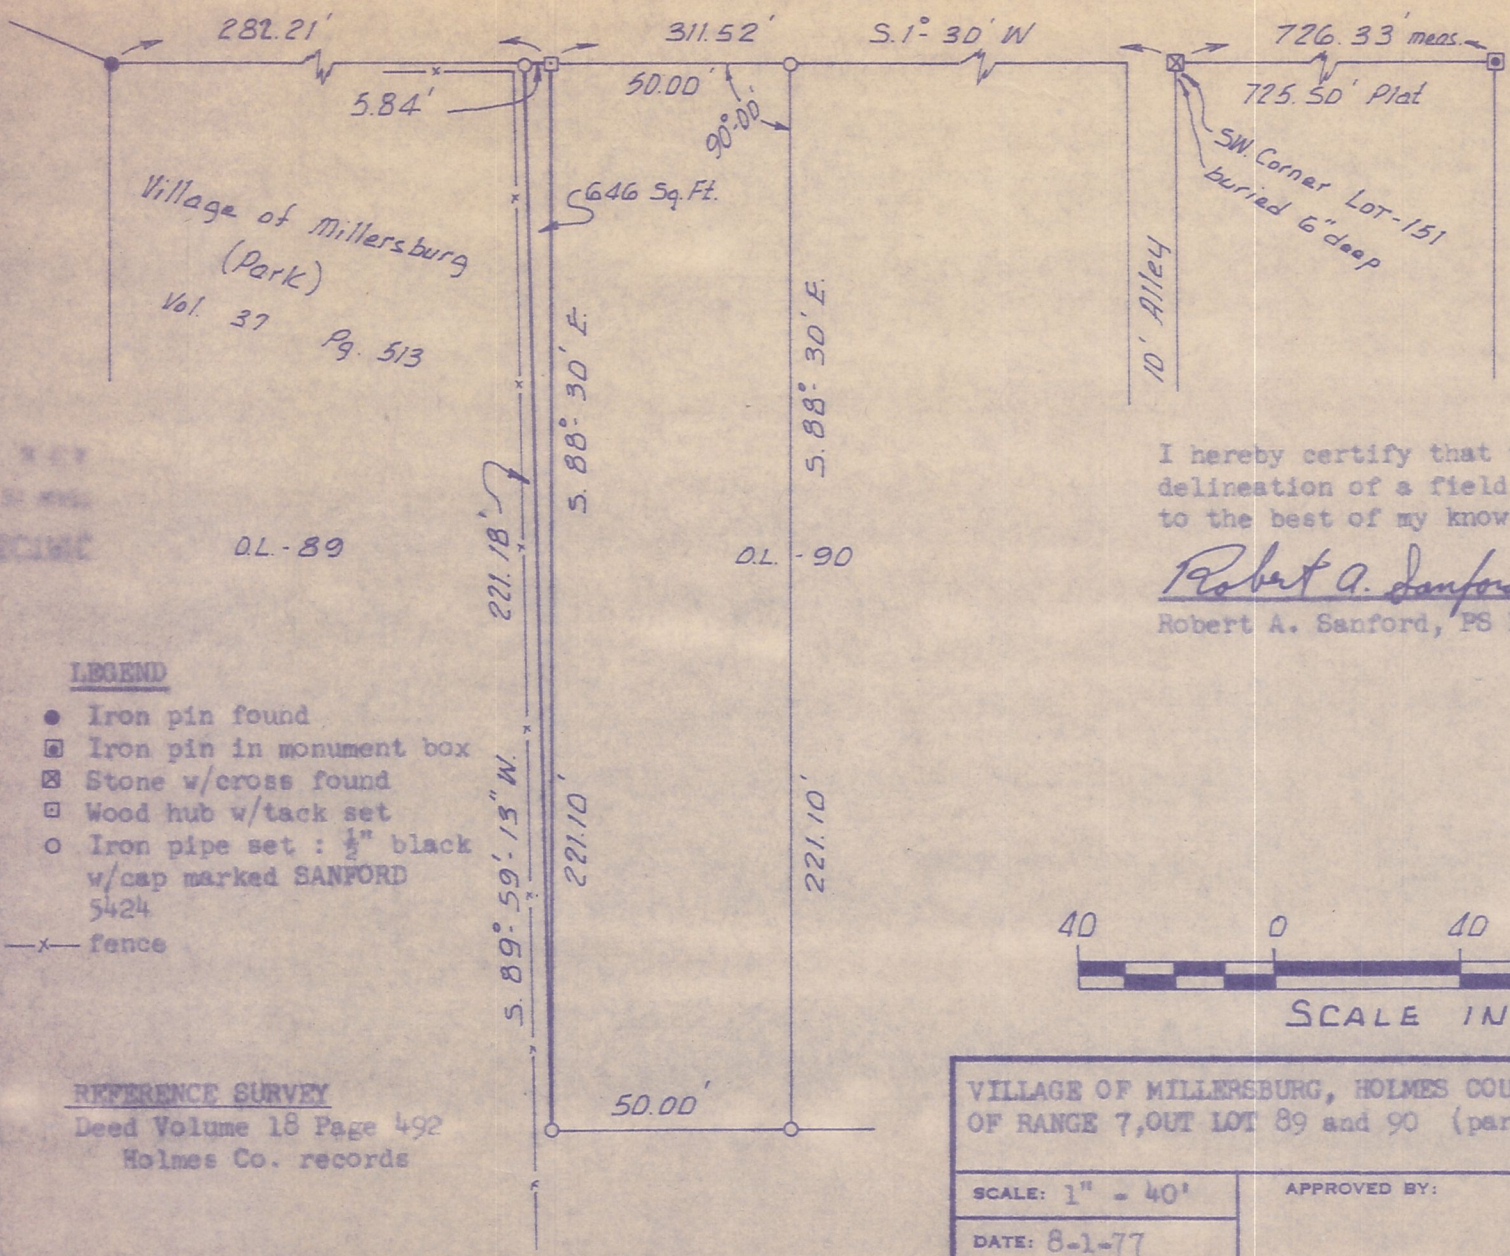 282.21'
311.52'
S.1°-30' W
726.33' meas.
5.84'
50.00'
725.50' Plat
90°-00'
SW. Corner LOT-151
buried 6" deep
Village of Millersburg
(Park)
Vol. 37 Pg. 513
646 Sq.Ft.
10' Alley
S. 88°-30' E.
S. 88°-30' E.
I hereby certify that
delineation of a field
to the best of my know
O.L.-89
221.18'
O.L.-90
Robert A. Sanfor
Robert A. Sanford, PS
LEGEND
Iron pin found
Iron pin in monument box
Stone w/cross found
Wood hub w/tack set
Iron pipe set : ½" black
w/cap marked SANFORD
5424
—x— fence
S. 89°-59'-13" W.
221.10'
221.10'
40 0 40
SCALE IN
REFERENCE SURVEY
Deed Volume 18 Page 492
Holmes Co. records
50.00'
VILLAGE OF MILLERSBURG, HOLMES COU
OF RANGE 7,OUT LOT 89 and 90 (par
SCALE: 1" = 40'
APPROVED BY:
DATE: 8-1-77